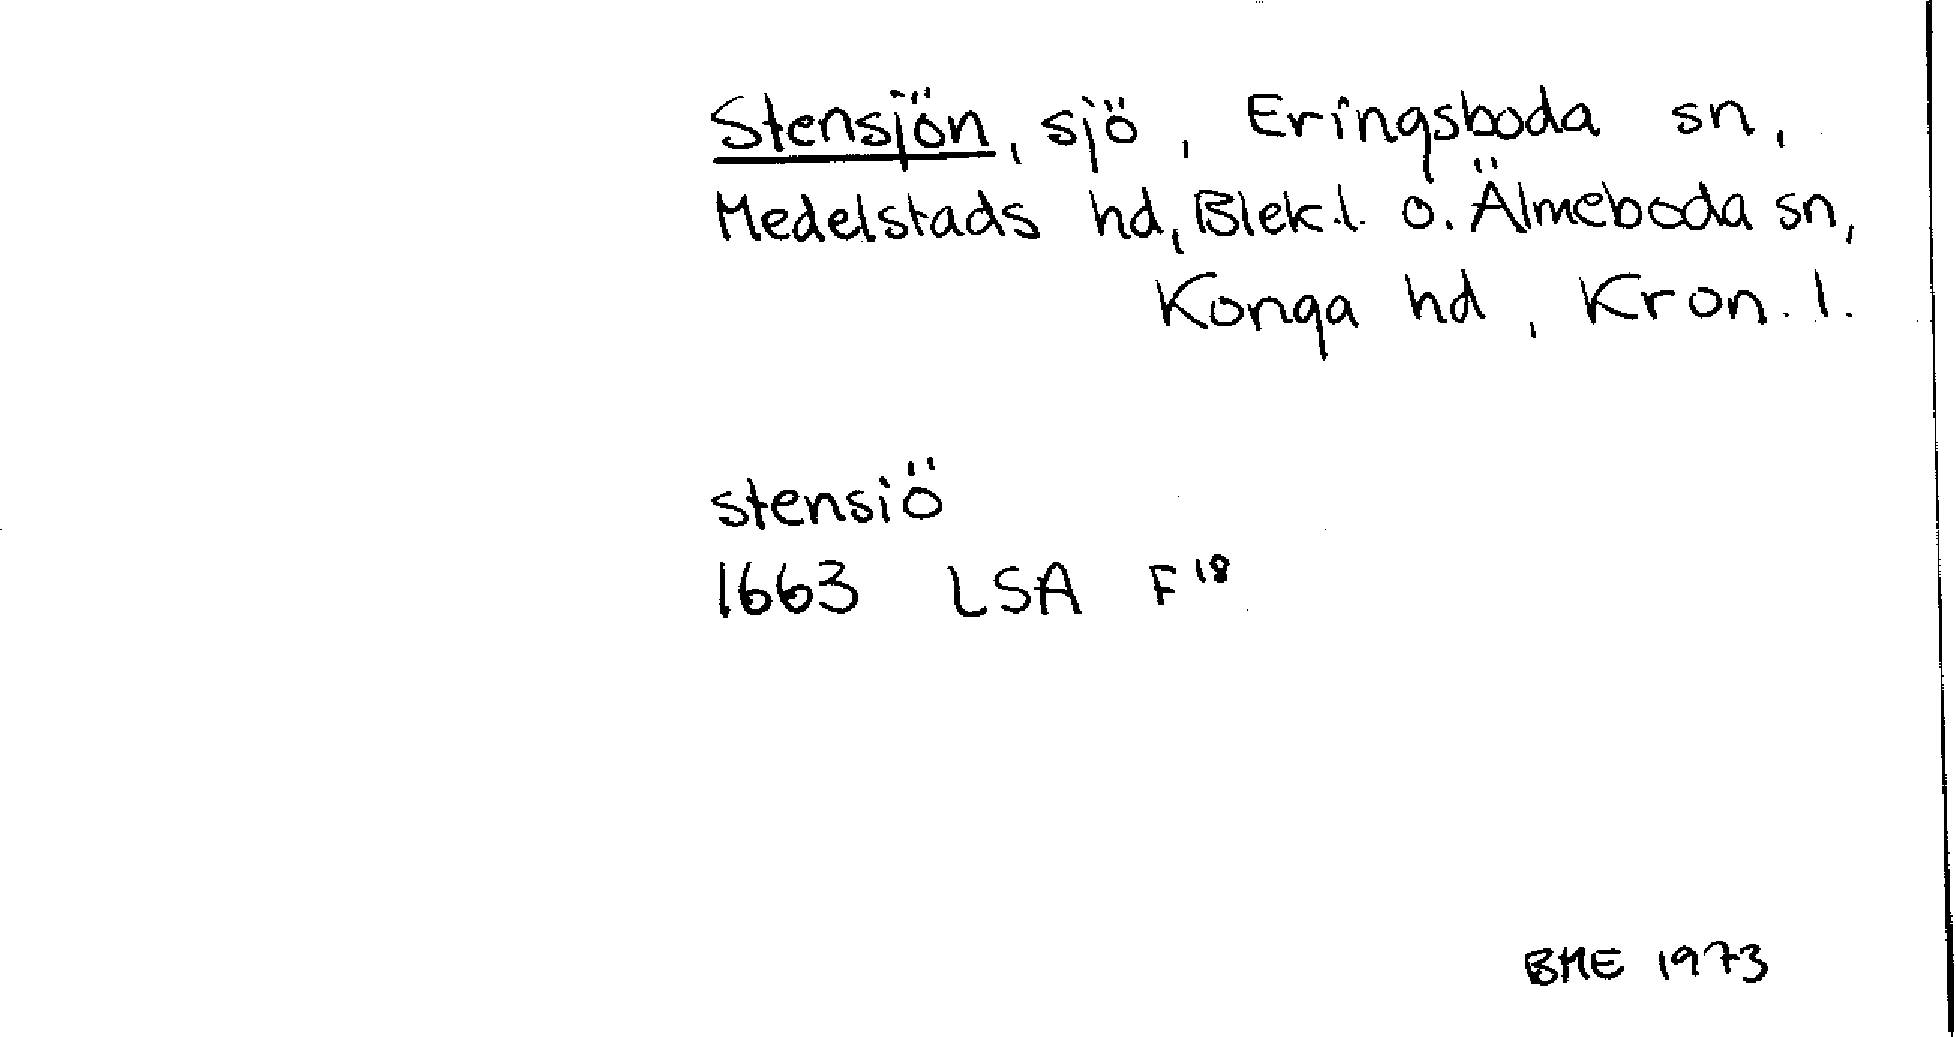 Stensjön, sjö, Eringsboda sn,
Medelstads hd, Blek.l. o. Älmeboda sn,
Konga hd, Kron. l.
stensiö
1663 LSA F18
BME 1973